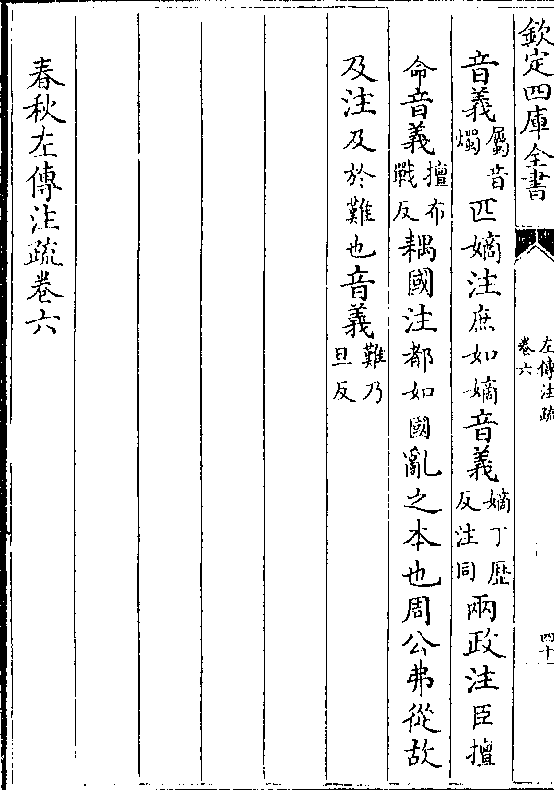 欽定四庫全書
左傳注疏
卷六
四十
音義屬音燭匹嫡注庶如嫡音義嫡丁歷反注同兩政注臣擅
命音義擅布戰反耦國注都如國亂之本也周公弗從故
及注及於難也音義難乃旦反
春秋左傳注疏卷六